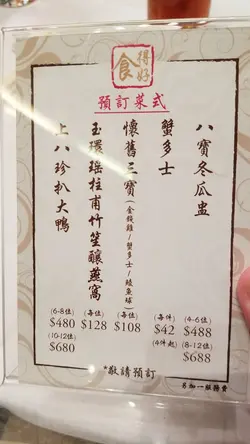 得好
食
預訂菜式
八寶冬瓜盅
(4-6位)
$488
(8-12位)
$688
蟹多士
(每件)
$42
(4件起)
懷舊三寶(金錢雞/蟹多士/鯪魚球)
(每位)
$108
玉環瑤柱甫竹笙釀燕窩
(每位)
$128
上八珍扒大鴨
(6-8位)
$480
(10-12位)
$680
*敬請預訂
另加一服務費